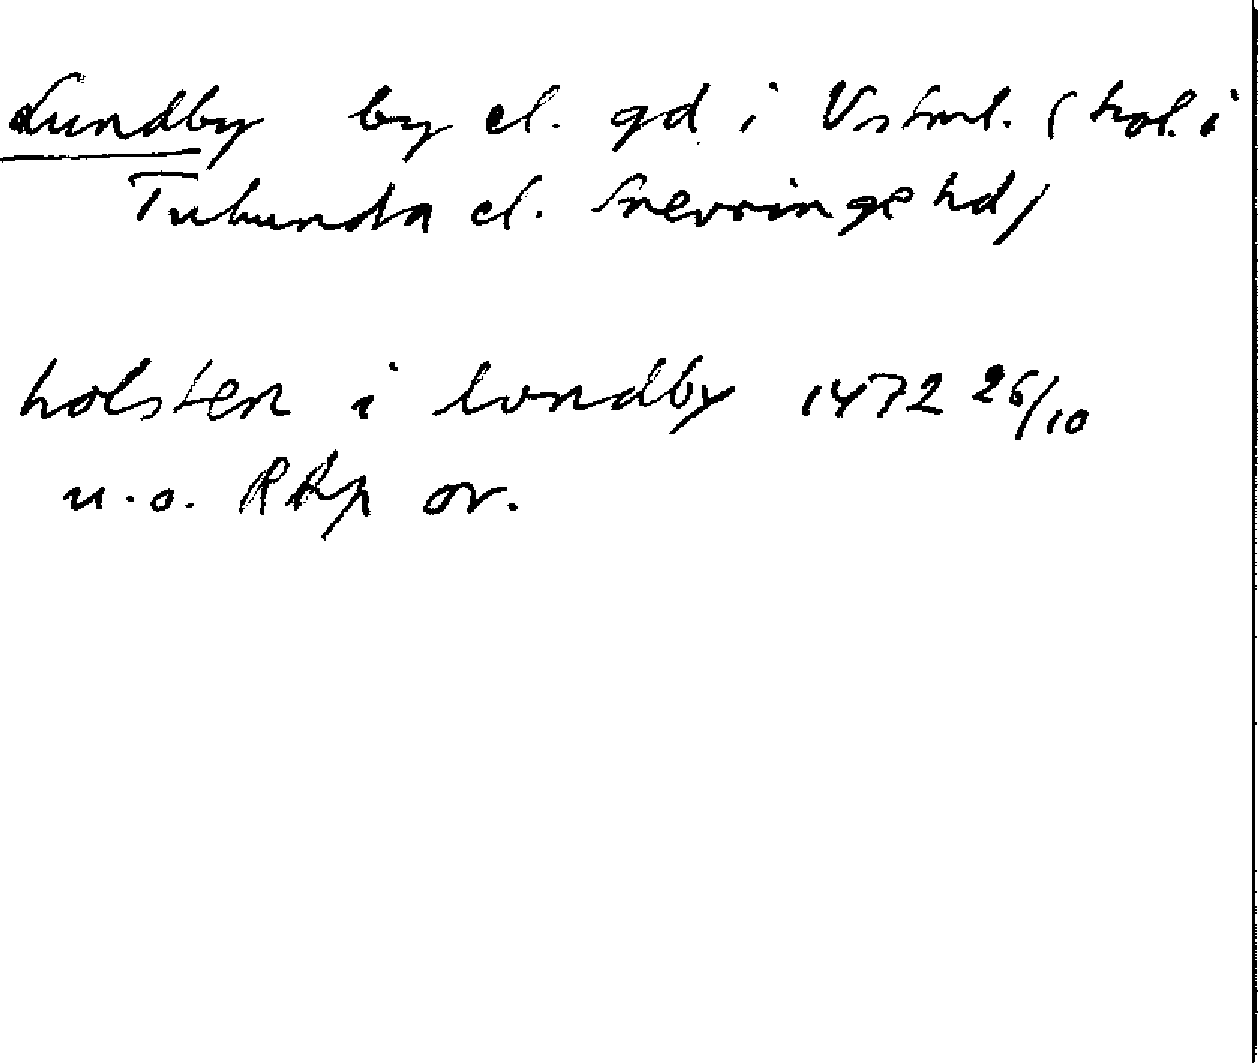 Lundby by el. gd i Vstml. (trol. i
Tuhundra el. Snevringe hd)
holsten i lundby 1472 26/10
u.o. RAp or.